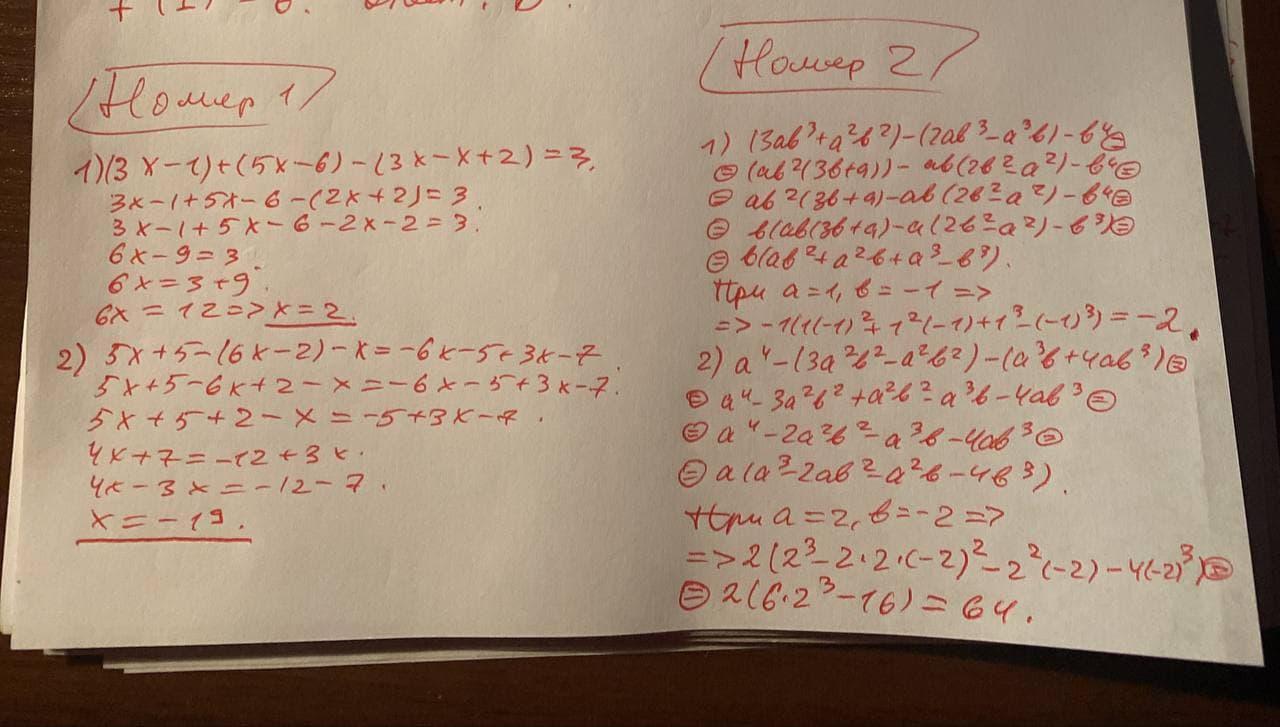 Номер 1
1)(3x-1)+(5x-6)-(3x-x+2)=3.
3x-1+5x-6-(2x+2)=3.
3x-1+5x-6-2x-2=3.
6x-9=3.
6x=3+9.
6x=12=>x=2.
2) 5x+5-(6x-2)-x=-6x-5+3x-7.
5x+5-6x+2-x=-6x-5+3x-7.
5x+5+2-x=-5+3x-7.
4x+7=-12+3x.
4x-3x=-12-7.
x=-19.
Номер 2
1) (3ab³+a²b²)-(2ab³-a³b)-b⁴=
=(ab²(3b+a))-ab(2b²-a²)-b⁴=
=ab²(3b+a)-ab(2b²-a²)-b⁴=
=b(ab(3b+a)-a(2b²-a²)-b³)=
=b(ab²+a²b+a³-b³).
При a=1, b=-1=>
=>-1(1(-1)²+1²(-1)+1³-(-1)³)=-2.
2) a⁴-(3a²b²-a²b²)-(a³b+4ab³)=
=a⁴-3a²b²+a²b²-a³b-4ab³=
=a⁴-2a²b²-a³b-4ab³=
=a(a³-2ab²-a²b-4b³).
При a=2, b=-2=>
=>2(2³-2·2·(-2)²-2²(-2)-4(-2)³)=
=2(6·2³-16)=64.